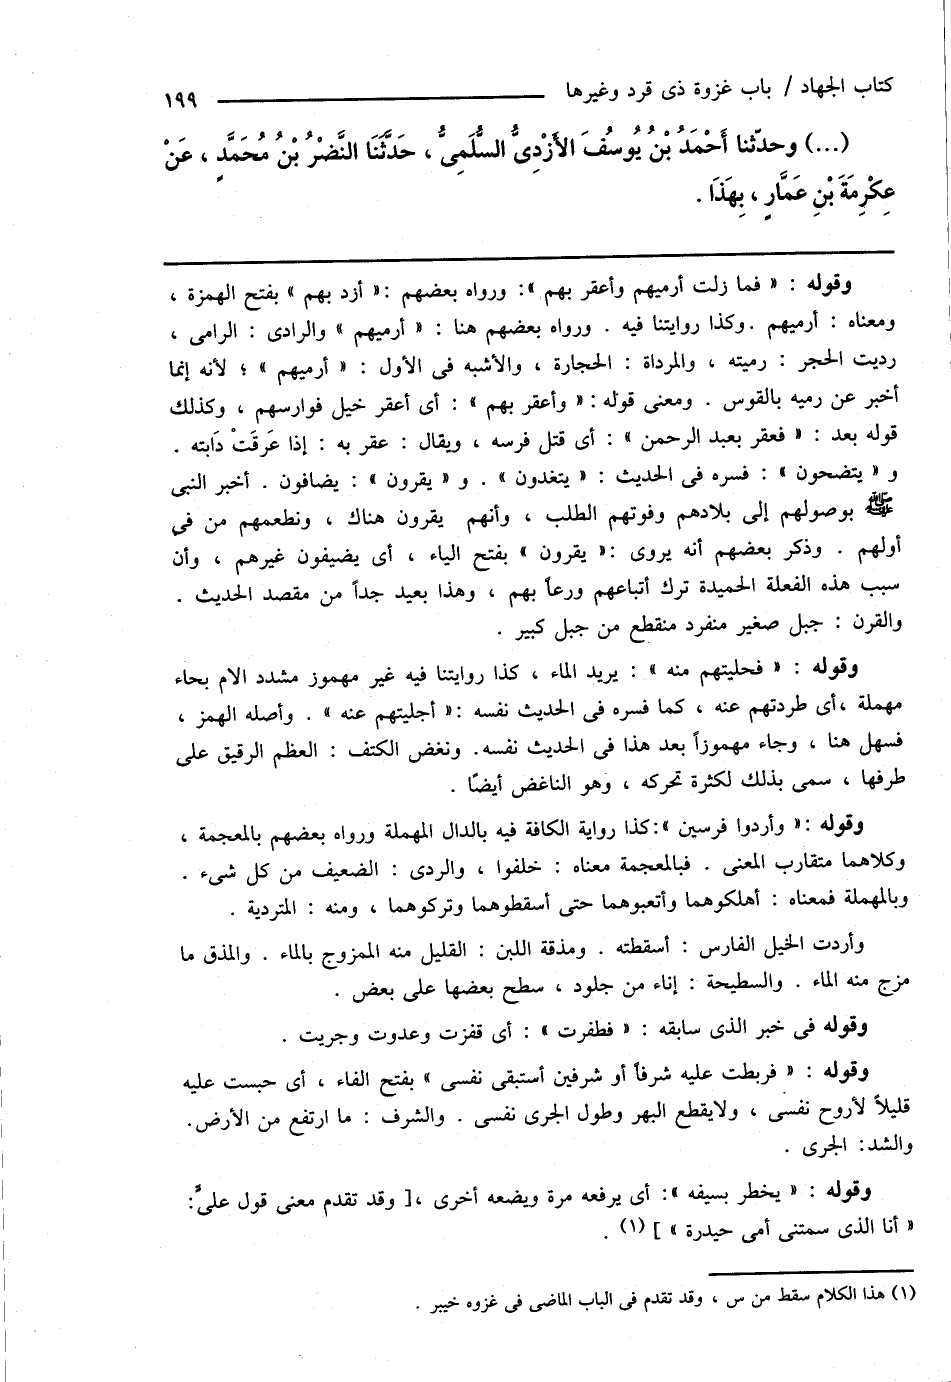 كتاب الجهاد / باب غزوة ذى قرد وغيرها ١٩٩
(...) وحدّثنا أَحْمَدُ بْنُ يُوسُفَ الأَزْدِىُّ السُّلَمِىُّ ، حَدَّثَنَا النَّضْرُ بْنُ مُحَمَّدٍ ، عَنْ
عِكْرِمَةَ بْنِ عَمَّارٍ ، بِهَذَا .
وقوله : « فما زلت أرميهم وأعقر بهم »: ورواه بعضهم :« أزد بهم » بفتح الهمزة ،
ومعناه : أرميهم .وكذا روايتنا فيه . ورواه بعضهم هنا : « أرميهم » والرادى : الرامى ،
رديت الحجر : رميته ، والمرداة : الحجارة ، والأشبه فى الأول : « أرميهم » ؛ لأنه إنما
أخبر عن رميه بالقوس . ومعنى قوله :« وأعقر بهم » : أى أعقر خيل فوارسهم ، وكذلك
قوله بعد : « فعقر بعبد الرحمن » : أى قتل فرسه ، ويقال : عقر به : إذا عَرَقَتْ دَابته .
و « يتضحون » : فسره فى الحديث : « يتغدون » . و « يقرون » : يضافون . أخبر النبى
ﷺ بوصولهم إلى بلادهم وفوتهم الطلب ، وأنهم يقرون هناك ، ونطعمهم من فى
أولهم . وذكر بعضهم أنه يروى :« يقرون » بفتح الياء ، أى يضيفون غيرهم ، وأن
سبب هذه الفعلة الحميدة ترك أتباعهم ورعاً بهم ، وهذا بعيد جداً من مقصد الحديث .
والقرن : جبل صغير منفرد منقطع من جبل كبير .
وقوله : « فحليتهم منه » : يريد الماء ، كذا روايتنا فيه غير مهموز مشدد الام بحاء
مهملة ،أى طردتهم عنه ، كما فسره فى الحديث نفسه :« أجليتهم عنه » . وأصله الهمز ،
فسهل هنا ، وجاء مهموزاً بعد هذا فى الحديث نفسه. ونغض الكتف : العظم الرقيق على
طرفها ، سمى بذلك لكثرة تحركه ، وهو الناغض أيضًا .
وقوله :« وأردوا فرسين »:كذا رواية الكافة فيه بالدال المهملة ورواه بعضهم بالمعجمة ،
وكلاهما متقارب المعنى . فبالمعجمة معناه : خلفوا ، والردى : الضعيف من كل شىء .
وبالمهملة فمعناه : أهلكوهما وأتعبوهما حتى أسقطوهما وتركوهما ، ومنه : المتردية .
وأردت الخيل الفارس : أسقطته . ومذقة اللبن : القليل منه الممزوج بالماء . والمذق ما
مزج منه الماء . والسطيحة : إناء من جلود ، سطح بعضها على بعض .
وقوله فى خبر الذى سابقه : « فطفرت » : أى قفزت وعدوت وجريت .
وقوله : « فربطت عليه شرفاً أو شرفين أستبقى نفسى » بفتح الفاء ، أى حبست عليه
قليلاً لأروح نفسى ، ولايقطع البهر وطول الجرى نفسى . والشرف : ما ارتفع من الأرض.
والشد: الجرى .
وقوله : « يخطر بسيفه »: أى يرفعه مرة ويضعه أخرى ،[ وقد تقدم معنى قول علىٍّ:
« أنا الذى سمتنى أمى حيدرة » ] (١) .
(١) هذا الكلام سقط من س ، وقد تقدم فى الباب الماضى فى غزوه خيبر .